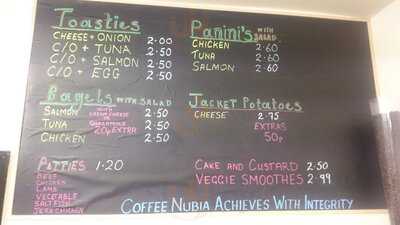 Toasties
CHEESE + ONION 2.00
C/O + TUNA 2.50
C/O + SALMON 2.50
C/O + EGG 2.50
Panini's WITH SALAD
CHICKEN 2.60
TUNA 2.60
SALMON 2.60
Bagels WITH SALAD
SALMON WITH CREAM CHEESE OR 2.50
TUNA 20p EXTRA 2.50
CHICKEN 2.50
JACKET POTATOES
CHEESE 2.75
EXTRAS
50p
PATTIES 1.20
BEEF
CHICKEN
LAMB
VEGETABLE
SALTFISH
JERK CHICKEN
CAKE AND CUSTARD 2.50
VEGGIE SMOOTHES 2.99
COFFEE NUBIA ACHIEVES WITH INTEGRITY